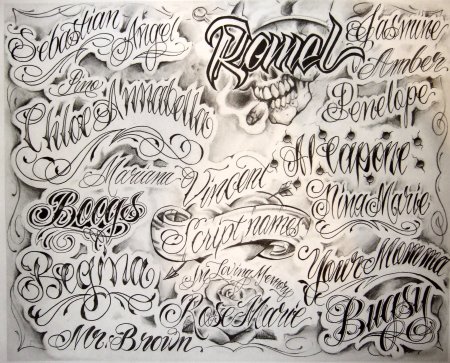 Sebastian
Angel
Ramel
Jasmine
Amber
Pino
Chloe
Annabella
Penelope
Al Capone
Mariana
Vincent
Nina Marie
Boogs
Script names
Regina
In Loving Memory
Your Momma
Rose Marie
Bugsy
Mr. Brown